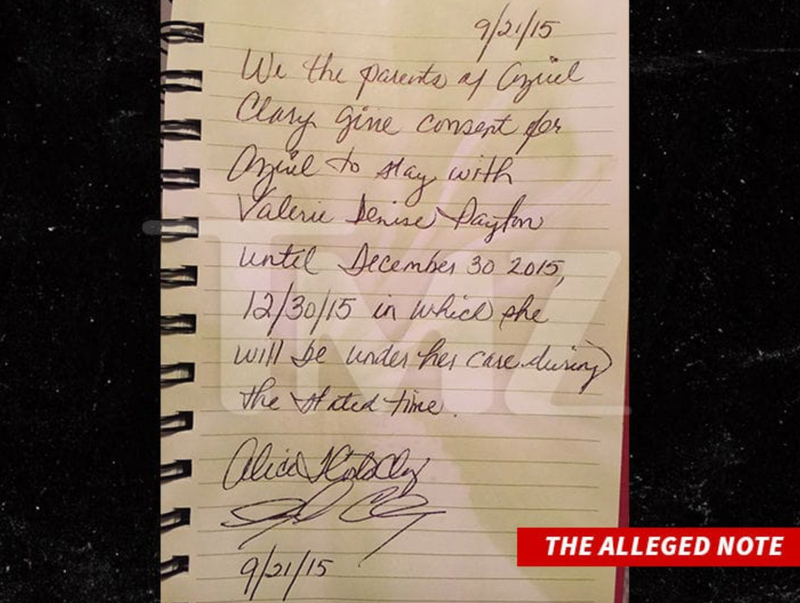 9/21/15
We the parents of Azriel
Clary give consent for
Azriel to stay with
Valerie Denise Payton
until December 30 2015,
12/30/15 in which she
will be under her care during
the stated time.
TMZ
Alice
9/21/15
THE ALLEGED NOTE